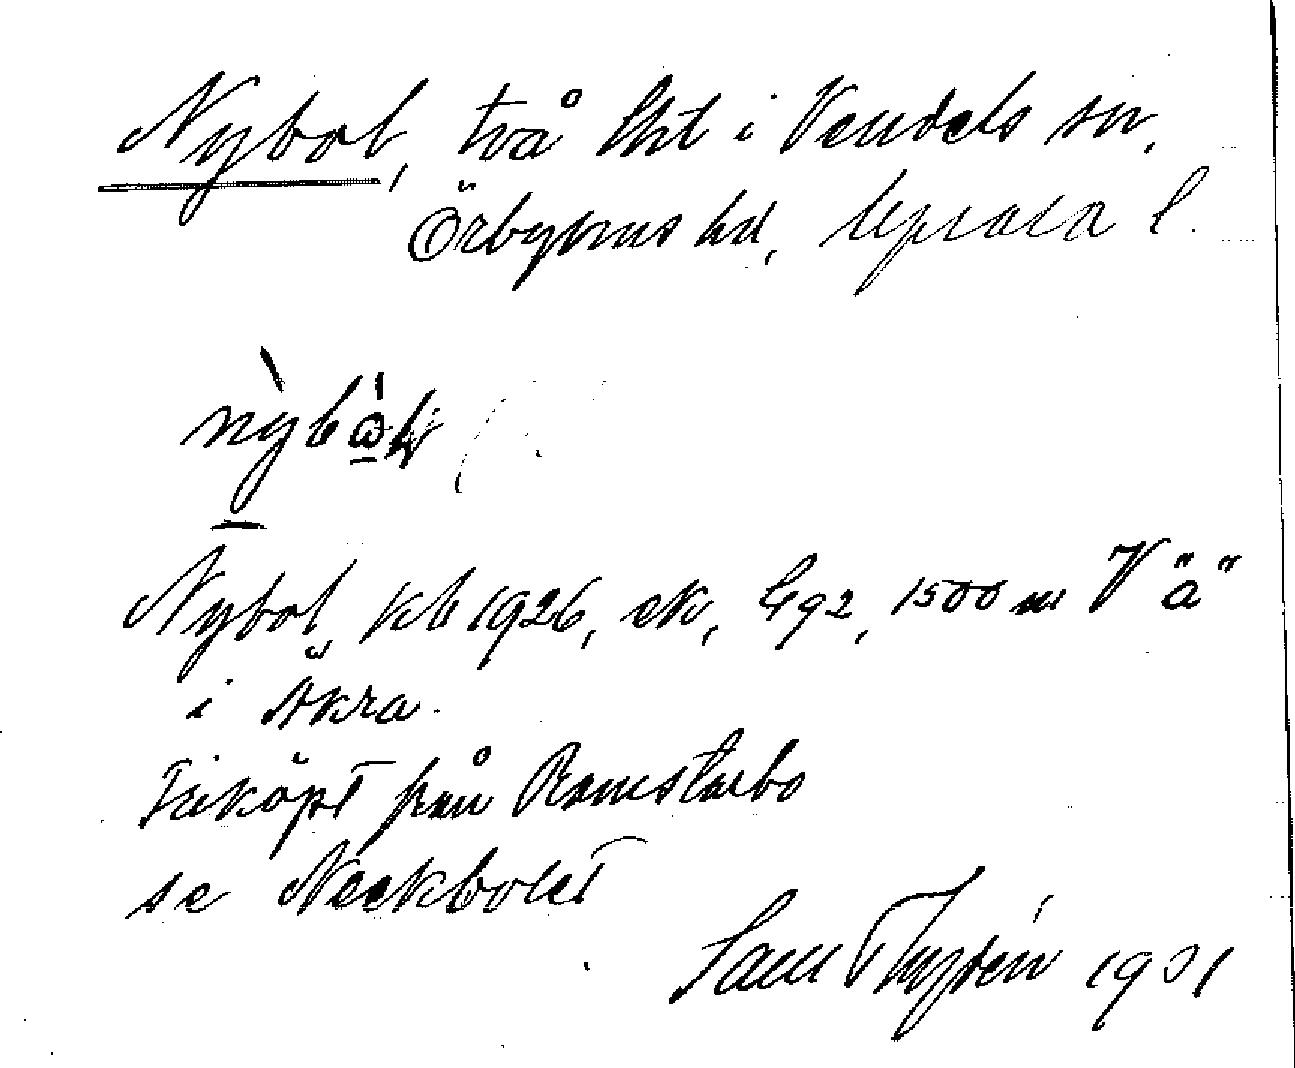 Nybol, två lht i Vendels sn,
Örbyhus hd, Uppsala l.
Nybol, kb 1926, ek, Gg2, 1500 m V "ä"
i Åkra.
Friköpt från Ramstarbo
se Neckbolet
Sam Thydén 1931